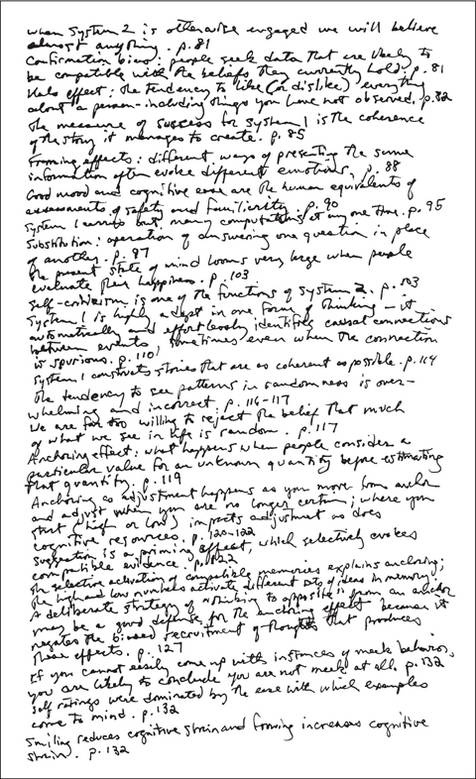 When System 2 is otherwise engaged we will believe
almost anything. p. 81
Confirmation bias: people seek data that are likely to
be compatible with the beliefs they currently hold. p. 81
Halo effect: the tendency to like (or dislike) everything
about a person—including things you have not observed. p. 82
The measure of success for System 1 is the coherence
of the story it manages to create. p. 85
Framing effects: different ways of presenting the same
information often evoke different emotions, p. 88
Good mood and cognitive ease are the human equivalents of
assessments of safety and familiarity. p. 90
System 1 carries out many computations at any one time. p. 95
Substitution: operation of answering one question in place
of another. p. 97
The present state of mind looms very large when people
evaluate their happiness. p. 103
Self-criticism is one of the functions of System 2. p. 103
System 1 is highly adept in one form of thinking — it
automatically and effortlessly identifies causal connections
between events, sometimes even when the connection
is spurious. p. 110
System 1 constructs stories that are as coherent as possible. p. 114
The tendency to see patterns in randomness is over-
whelming and incorrect p. 116-117
We are far too willing to reject the belief that much
of what we see in life is random. p. 117
Anchoring effect: what happens when people consider a
particular value for an unknown quantity before estimating
that quantity. p. 119
Anchoring as adjustment happens as you move from anchor
and adjust when you are no longer certain; where you
start (high or low) impacts adjustment as does
cognitive resources. p. 120-122
Suggestion is a priming effect, which selectively evokes
compatible evidence. p. 122
The selective activating of compatible memories explains anchoring;
the high and low numbers activate different sets of ideas in memory,
A deliberate strategy of "thinking to opposite" from an anchor
may be a good defense for the anchoring effect because it
negates the biased recruitment of thoughts that produces
these effects. p. 127
If you cannot easily come up with instances of meek behavior,
you are likely to conclude you are not meek at all. p. 132
Self ratings were dominated by the ease with which examples
come to mind. p. 132
Smiling reduces cognitive strain and frowning increases cognitive
strain. p. 132